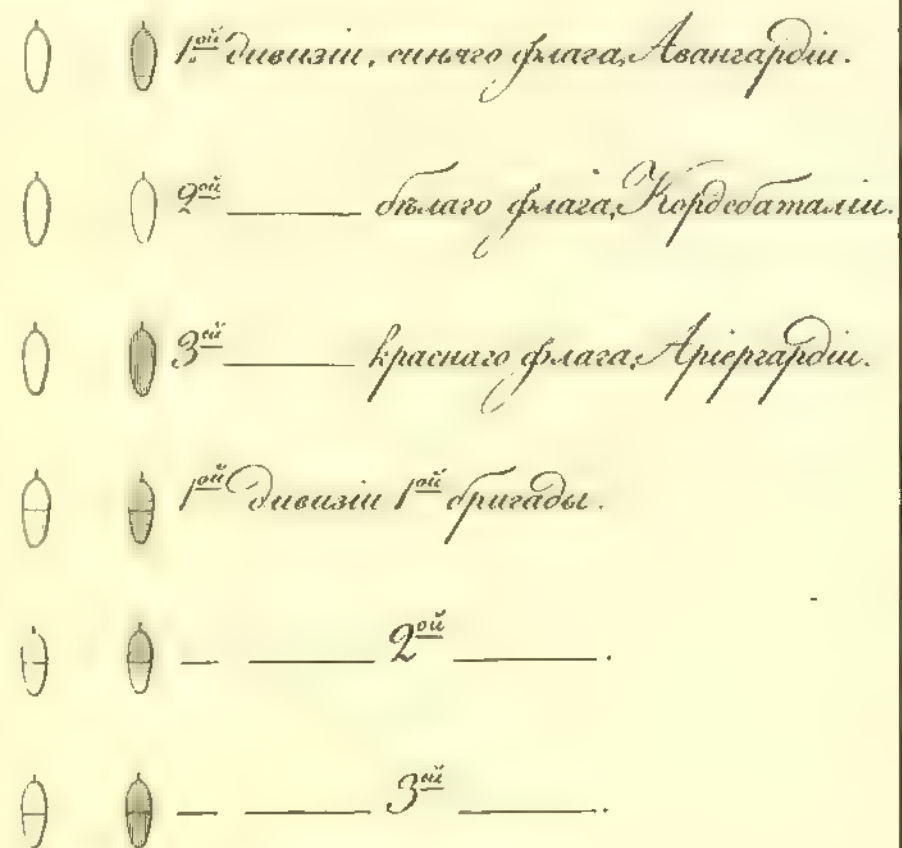 1ой дивизіи, синяго флага, Авангардіи.
2ой ——— бѣлаго флага, Кордебаталіи.
3ей ——— краснаго флага, Аріергардіи.
1ой дивизіи 1ой бригады.
— ——— 2ой ———.
— ——— 3ей ———.